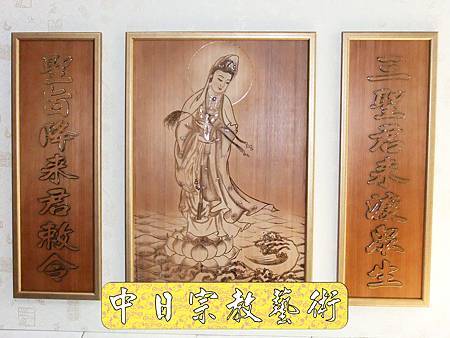 三聖君來渡眾生
聖旨降来君敕令
中日宗教藝術